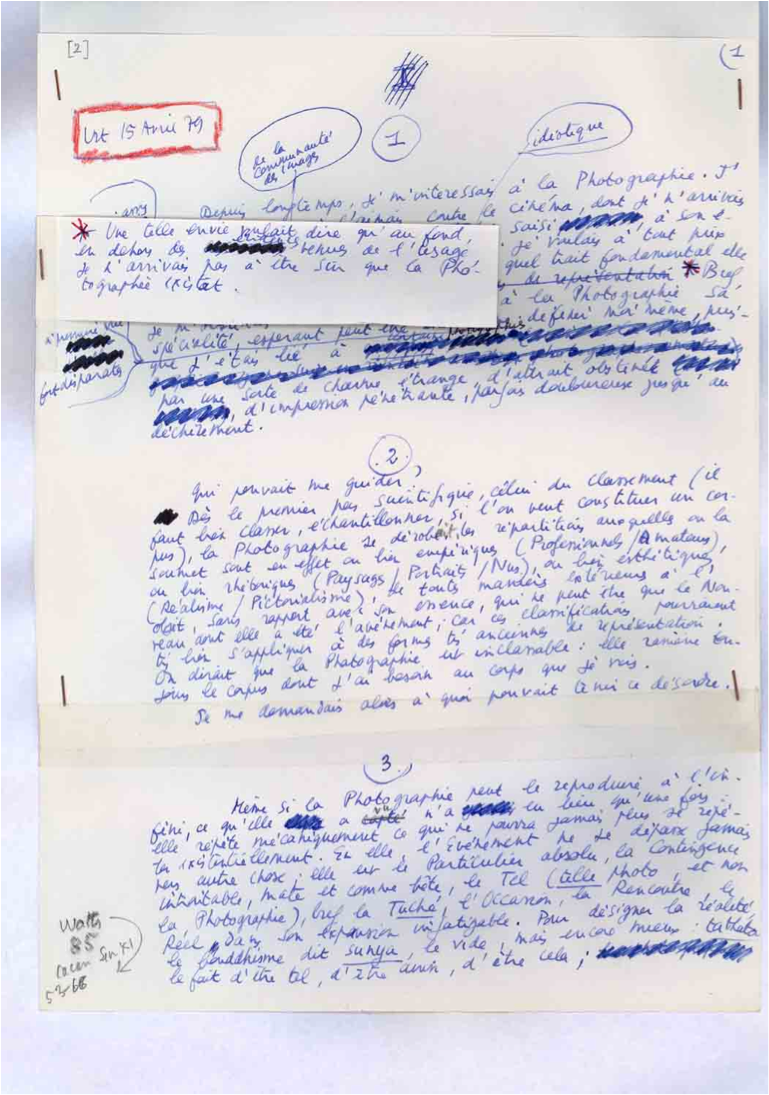 [2]
(1
I
Urt 15 Avril 79
1
de la
communauté
des images
idiotique
Depuis longtemps, je m'intéressais à la Photographie. J'
l'aimais contre le cinéma, dont je n'arrivais
saisi à son é-
je voulais à tout prix
quel trait fondamental elle
de représentation * Bref,
à la Photographie sa
* Une telle envie voulait dire qu'au fond,
en dehors des venues de l'usage
je n'arrivais pas à être sûr que la Pho-
tographie existât.
à première vue
fort disparates
spécialité, espérant peut-être définir moi-même, puis-
que j'étais lié à
par une sorte de charme étrange, d'attrait obstiné
d'impression pénétrante, parfois douloureuse jusqu'au
déchirement.
2
Qui pouvait me guider?
Dès le premier pas scientifique, celui du classement (il
faut bien classer, échantillonner, si l'on veut constituer un cor-
pus), la Photographie se dérobait. les répartitions auxquelles on la
soumet sont en effet ou bien empiriques (Professionnels / Amateurs),
ou bien rhétoriques (Paysages / Portraits / Nus), ou bien esthétiques
(Réalisme / Pictorialisme), de toutes manières extérieures à l'
objet, sans rapport avec son essence, qui ne peut être que le Nou-
veau dont elle a été l'avènement; car ces classifications pourraient
très bien s'appliquer à des formes très anciennes de représentation.
On dirait que la Photographie est inclassable : elle ramène tou-
jours le corpus dont j'ai besoin au corps que je vois.
Je me demandais alors à quoi pouvait tenir ce désordre.
3
Même si la Photographie peut le reproduire à l'in-
fini, ce qu'elle a vu n'a eu lieu qu'une fois :
elle répète mécaniquement ce qui ne pourra jamais plus se répé-
ter existentiellement. En elle, l'événement ne se dépasse jamais
vers autre chose; elle est le Particulier absolu, la Contingence
inimitable, mate et comme bête, le Tel (telle photo, et non
la Photographie), bref la Tuché, l'Occasion, la Rencontre, le
Réel, dans son expansion infatigable. Pour désigner la réalité
le Bouddhisme dit sunya, le vide, mais encore mieux : tathata
le fait d'être tel, d'être ainsi, d'être cela;
Watts
85
Lacan Sem XI
53-66